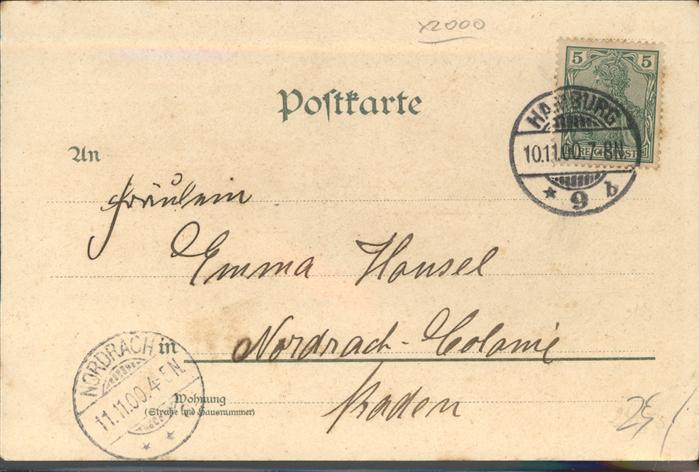 x2000
5 5
Postkarte
HAMBURG
10.11.00.7-8N.
* 9 b
REICHSPOST
An
Fräulein
Emma Hansel
in Nordrach-Colonie
NORDRACH
11.11.00.4-5N.
Wohnung
(Straße und Hausnummer)
Baden
25,